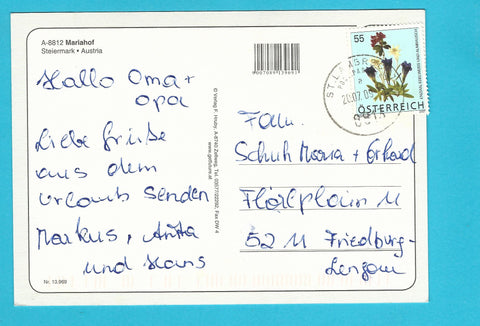 A-8812 Mariahof
Steiermark • Austria
Hallo Oma +
Opa
Liebe Grüße
aus dem
Urlaub senden
Markus, Anita
und Hans
Nr. 13.969
© Verlag F.
A-8740 Zeltweg, Tel.
Fax DW 4
55
ÖSTERREICH
ST.
20.07.
8813
Fam.
Schuh Maria + Erhard
11
5211 Friedburg-
Lengau